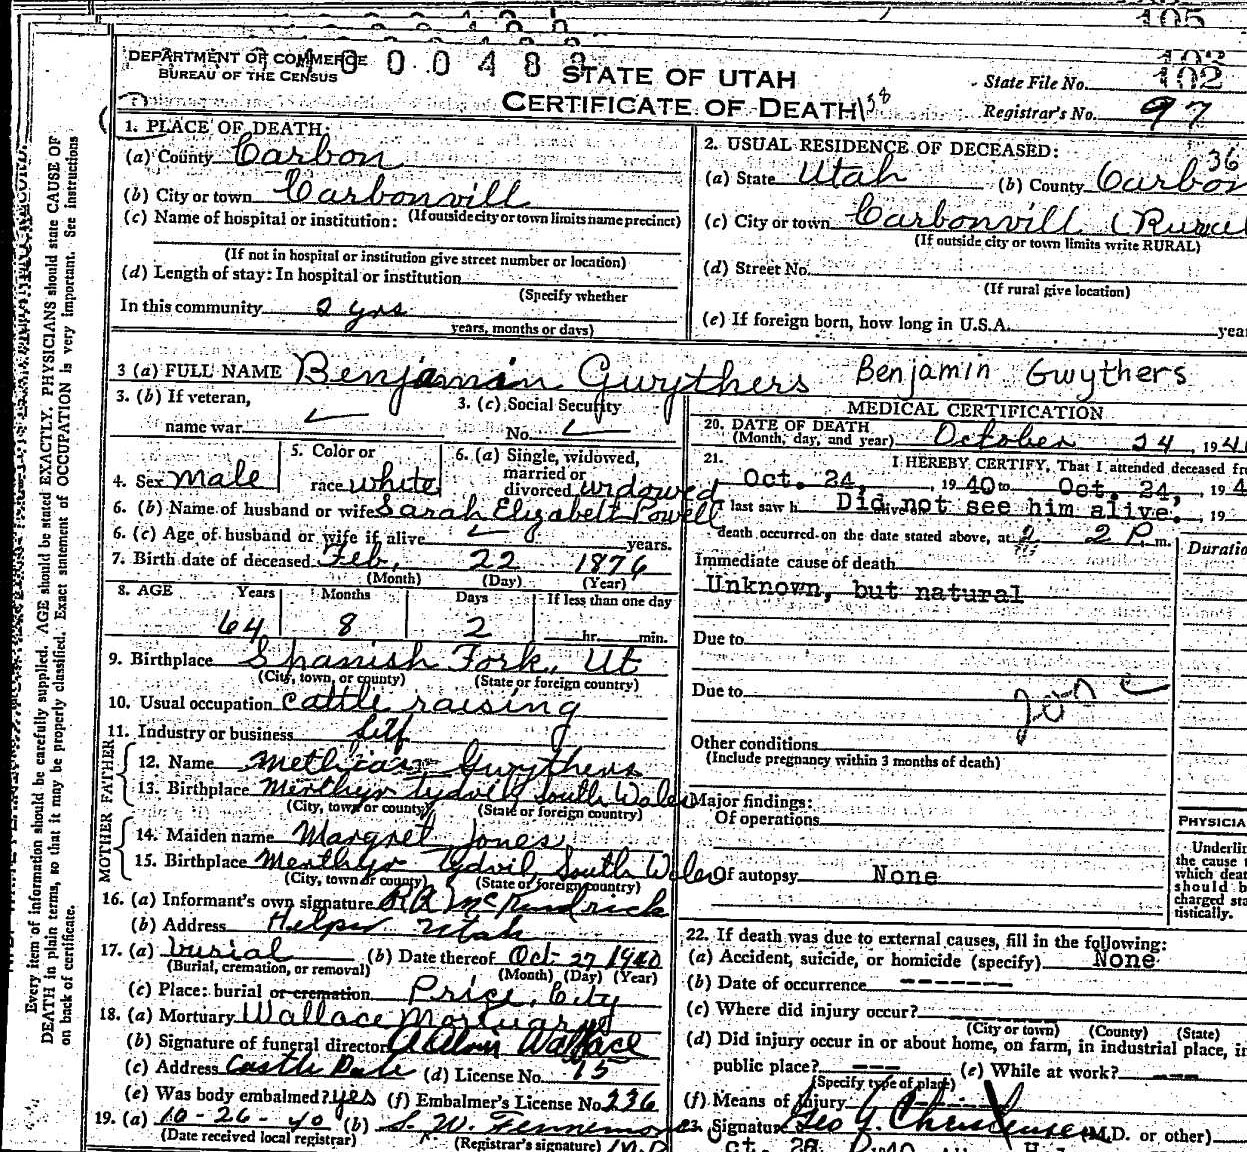 105
103
DEPARTMENT OF COMMERCE
BUREAU OF THE CENSUS
STATE OF UTAH
CERTIFICATE OF DEATH
State File No. 102
Registrar's No. 97
1. PLACE OF DEATH:
(a) County Carbon
(b) City or town Carbonvill
(c) Name of hospital or institution: (If outside city or town limits name precinct)
(If not in hospital or institution give street number or location)
(d) Length of stay: In hospital or institution
(Specify whether
In this community 2 yrs
years, months or days)
2. USUAL RESIDENCE OF DECEASED:
36
(a) State Utah (b) County Carbon
(c) City or town Carbonvill (Rural
(If outside city or town limits write RURAL)
(d) Street No.
(If rural give location)
(e) If foreign born, how long in U.S.A. yea
3 (a) FULL NAME Benjamin Gwythers Benjamin Gwythers
3. (b) If veteran,
name war
3. (c) Social Security
No.
4. Sex male
5. Color or
race white
6. (a) Single, widowed,
married or
divorced widowed
6. (b) Name of husband or wife Sarah Elizabeth Powell
6. (c) Age of husband or wife if alive years.
7. Birth date of deceased Feb. 22 1876
(Month) (Day) (Year)
8. AGE Years Months Days If less than one day
64 8 2 hr. min.
9. Birthplace Spanish Fork, Ut
(City, town, or county) (State or foreign country)
10. Usual occupation cattle raising
11. Industry or business Self
FATHER
12. Name Gwythers
13. Birthplace Merthyr Tydvil South Wales
(City, town or county) (State or foreign country)
MOTHER
14. Maiden name Margret Jones
15. Birthplace Merthyr Tydvil, South Wales
(City, town or county) (State or foreign country)
16. (a) Informant's own signature
(b) Address Helper Utah
17. (a) burial (b) Date thereof Oct- 27 1940
(Burial, cremation, or removal) (Month) (Day) (Year)
(c) Place: burial or cremation Price, City
18. (a) Mortuary Wallace Mortuary
(b) Signature of funeral director Wallace
(c) Address Castle Dale (d) License No. 15
(e) Was body embalmed? yes (f) Embalmer's License No. 236
19. (a) 10-26-40 (b) S. W.
(Date received local registrar) (Registrar's signature)
MEDICAL CERTIFICATION
20. DATE OF DEATH
(Month, day, and year) October 24, 194
21. I HEREBY CERTIFY, That I attended deceased fr
Oct. 24, 1940 to Oct. 24, 194
I last saw h Did not see him alive. , 19
death occurred on the date stated above, at 2 P. m.
Duratio
Immediate cause of death
Unknown, but natural
Due to
Due to
Other conditions
(Include pregnancy within 3 months of death)
Major findings:
Of operations
Of autopsy None
PHYSICIA
Underlin
the cause t
which deat
should b
charged sta
tistically.
22. If death was due to external causes, fill in the following:
(a) Accident, suicide, or homicide (specify) None
(b) Date of occurrence -------
(c) Where did injury occur?
(City or town) (County) (State)
(d) Did injury occur in or about home, on farm, in industrial place, in
public place? --- (e) While at work? ---
(Specify type of place)
(f) Means of Injury
23. Signature Geo G. Christensen (M.D. or other)
Every item of information should be carefully supplied. AGE should be stated EXACTLY. PHYSICIANS should state CAUSE OF
DEATH in plain terms, so that it may be properly classified. Exact statement of OCCUPATION is very important. See instructions
on back of certificate.